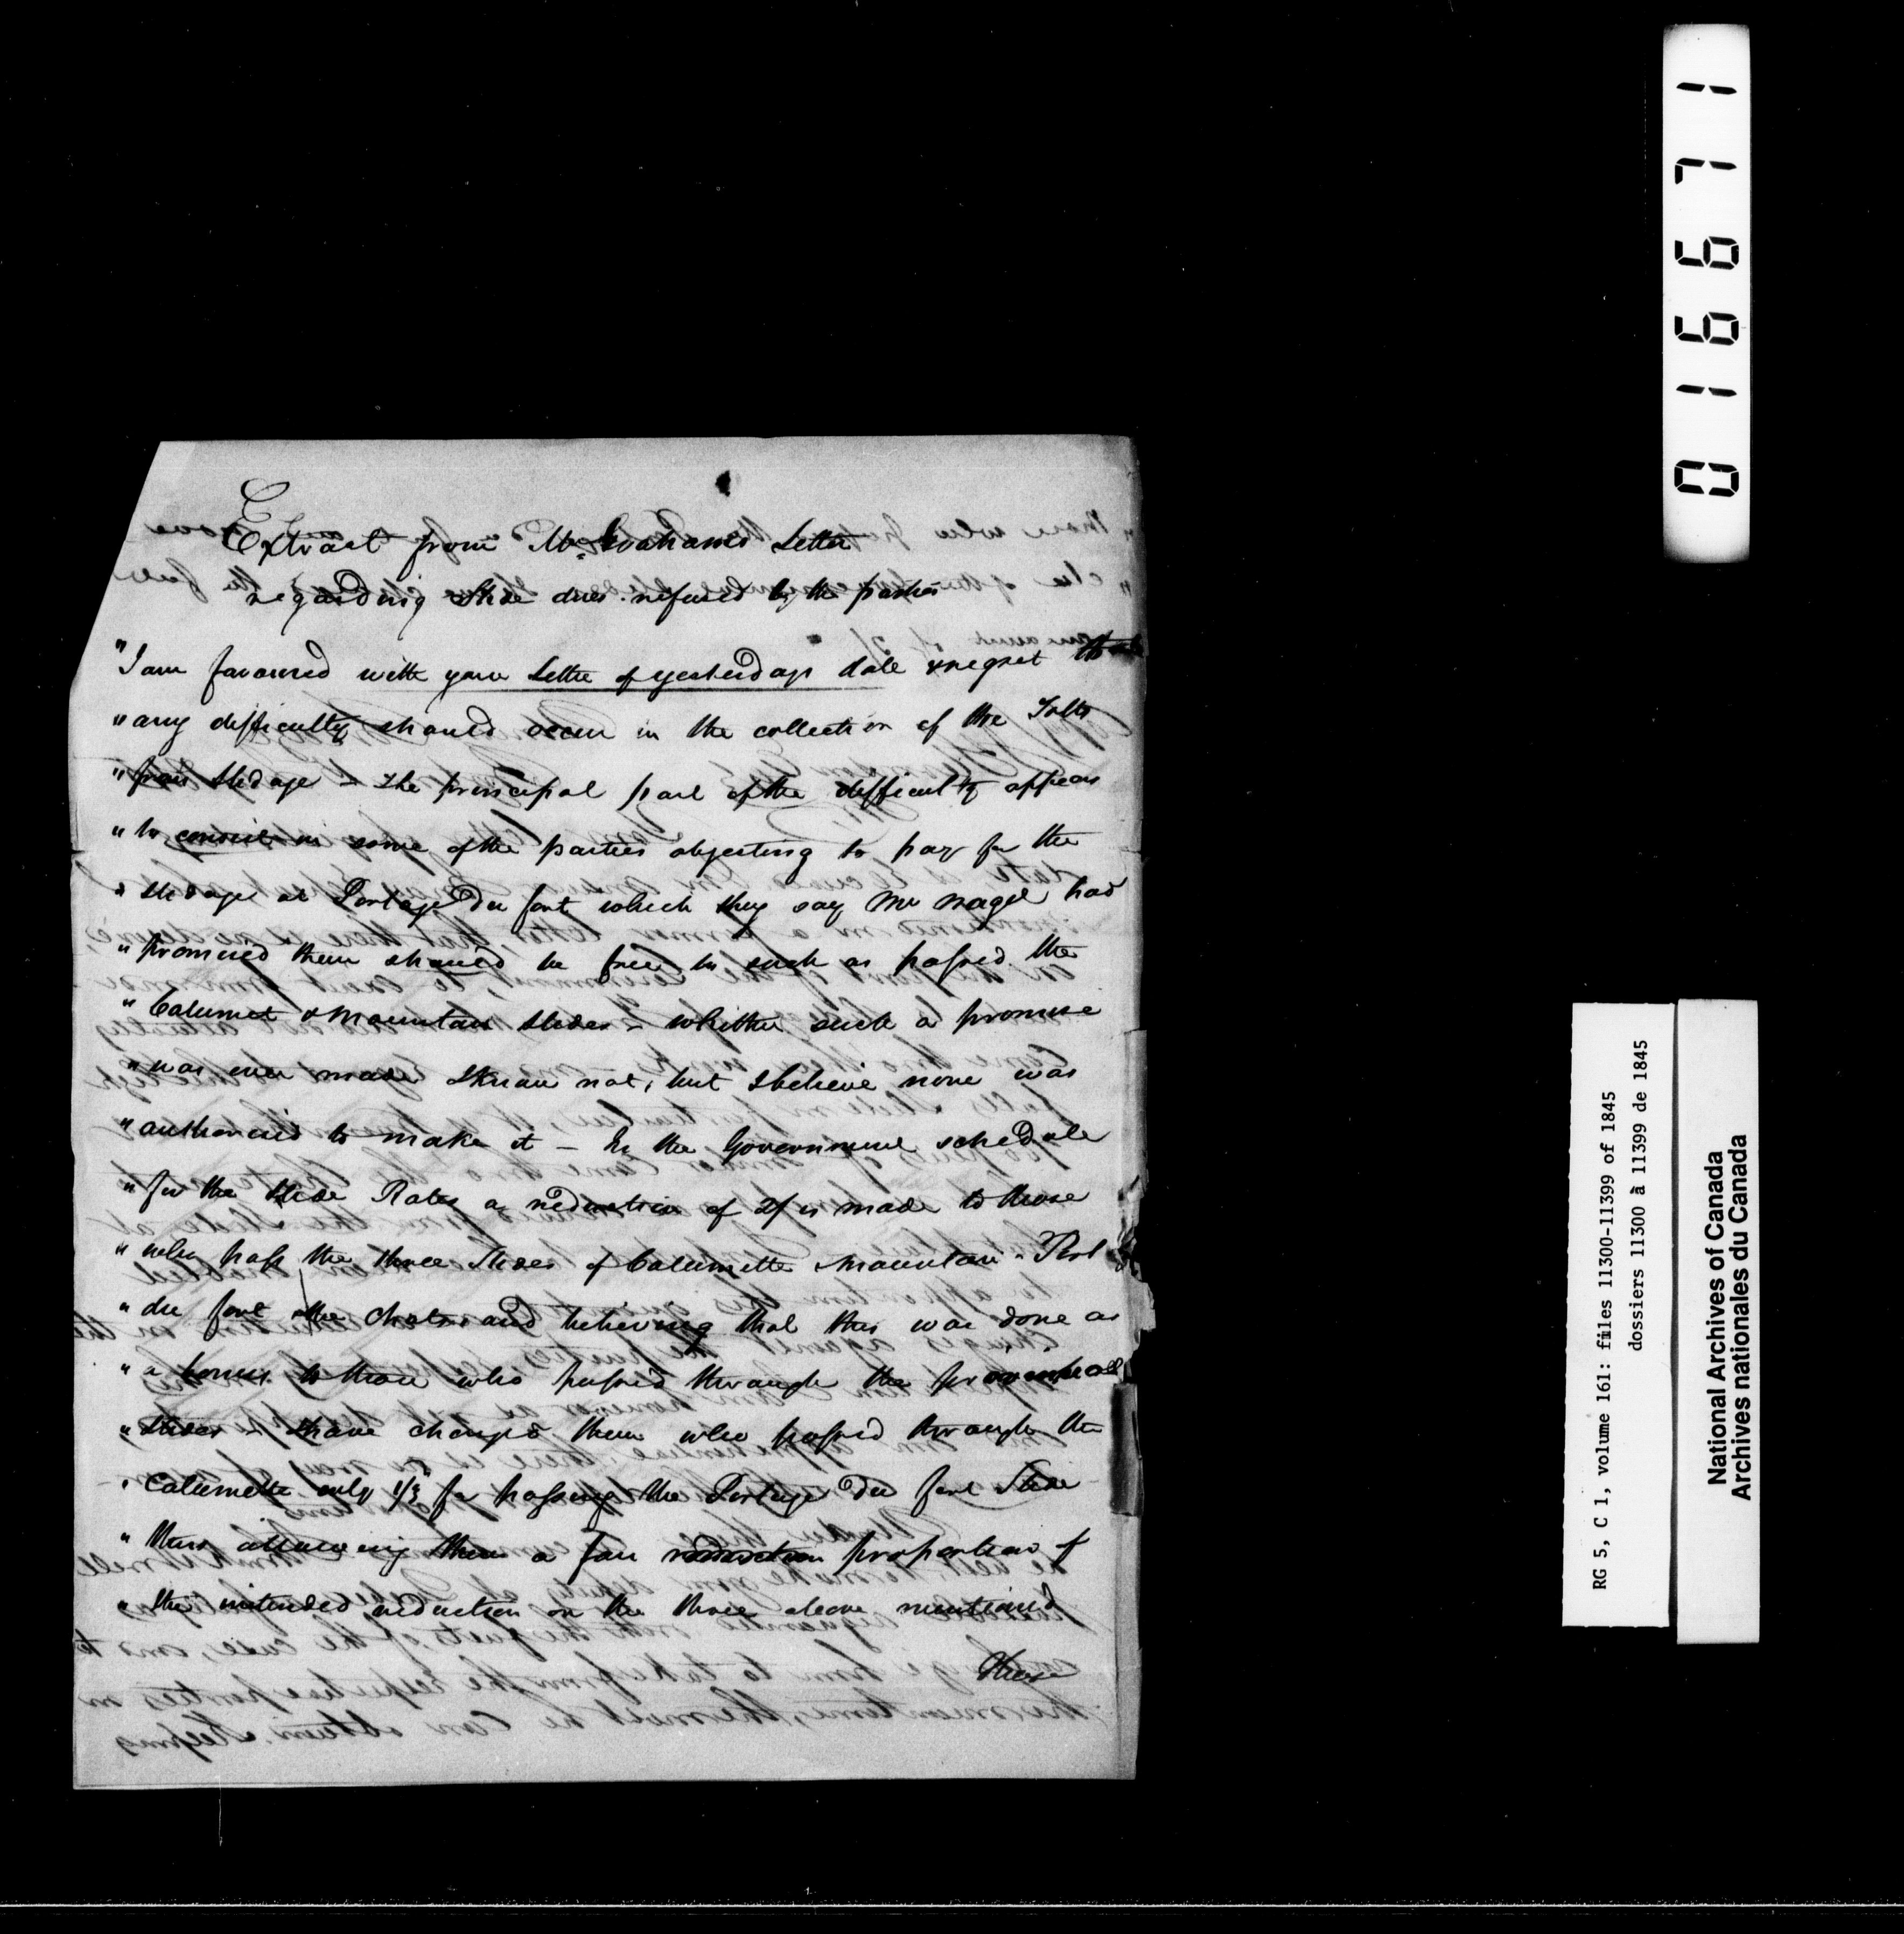 Extract from Mr Grahams Letter
regarding Slide dues refused by the parties
"I am favoured with your Letter of yesterdays date & regret that
"any difficulty should occur in the collection of the Tolls
"from Slidage – The principal part of the difficulty appears
"to consist in some of the parties objecting to pay for the
"Slidage at Portage du fort which they say Mr Nagle had
"promised them should be free to such as passed the
"Calumet & Mountain Slides – whither such a promise
"was ever made I know not, but I believe none was
"authorised to make it – In the Government schedule
"for the Slide Rates a reduction of 2/ is made to those
"who pass the three Slides of Calumette Mountain & Port
"du fort & the Chats and believing that this was done as
"a bonus to those who passed through the provincial
"Slides – I have charged them who passed through the
"Calumette only 1/3 for passing the Portage du fort Slide
"thus allowing them a fair proportion of
"the intended reduction on the three above mentioned
Those
011671
RG 5, C 1, volume 161: files 11300-11399 of 1845
dossiers 11300 à 11399 de 1845
National Archives of Canada
Archives nationales du Canada